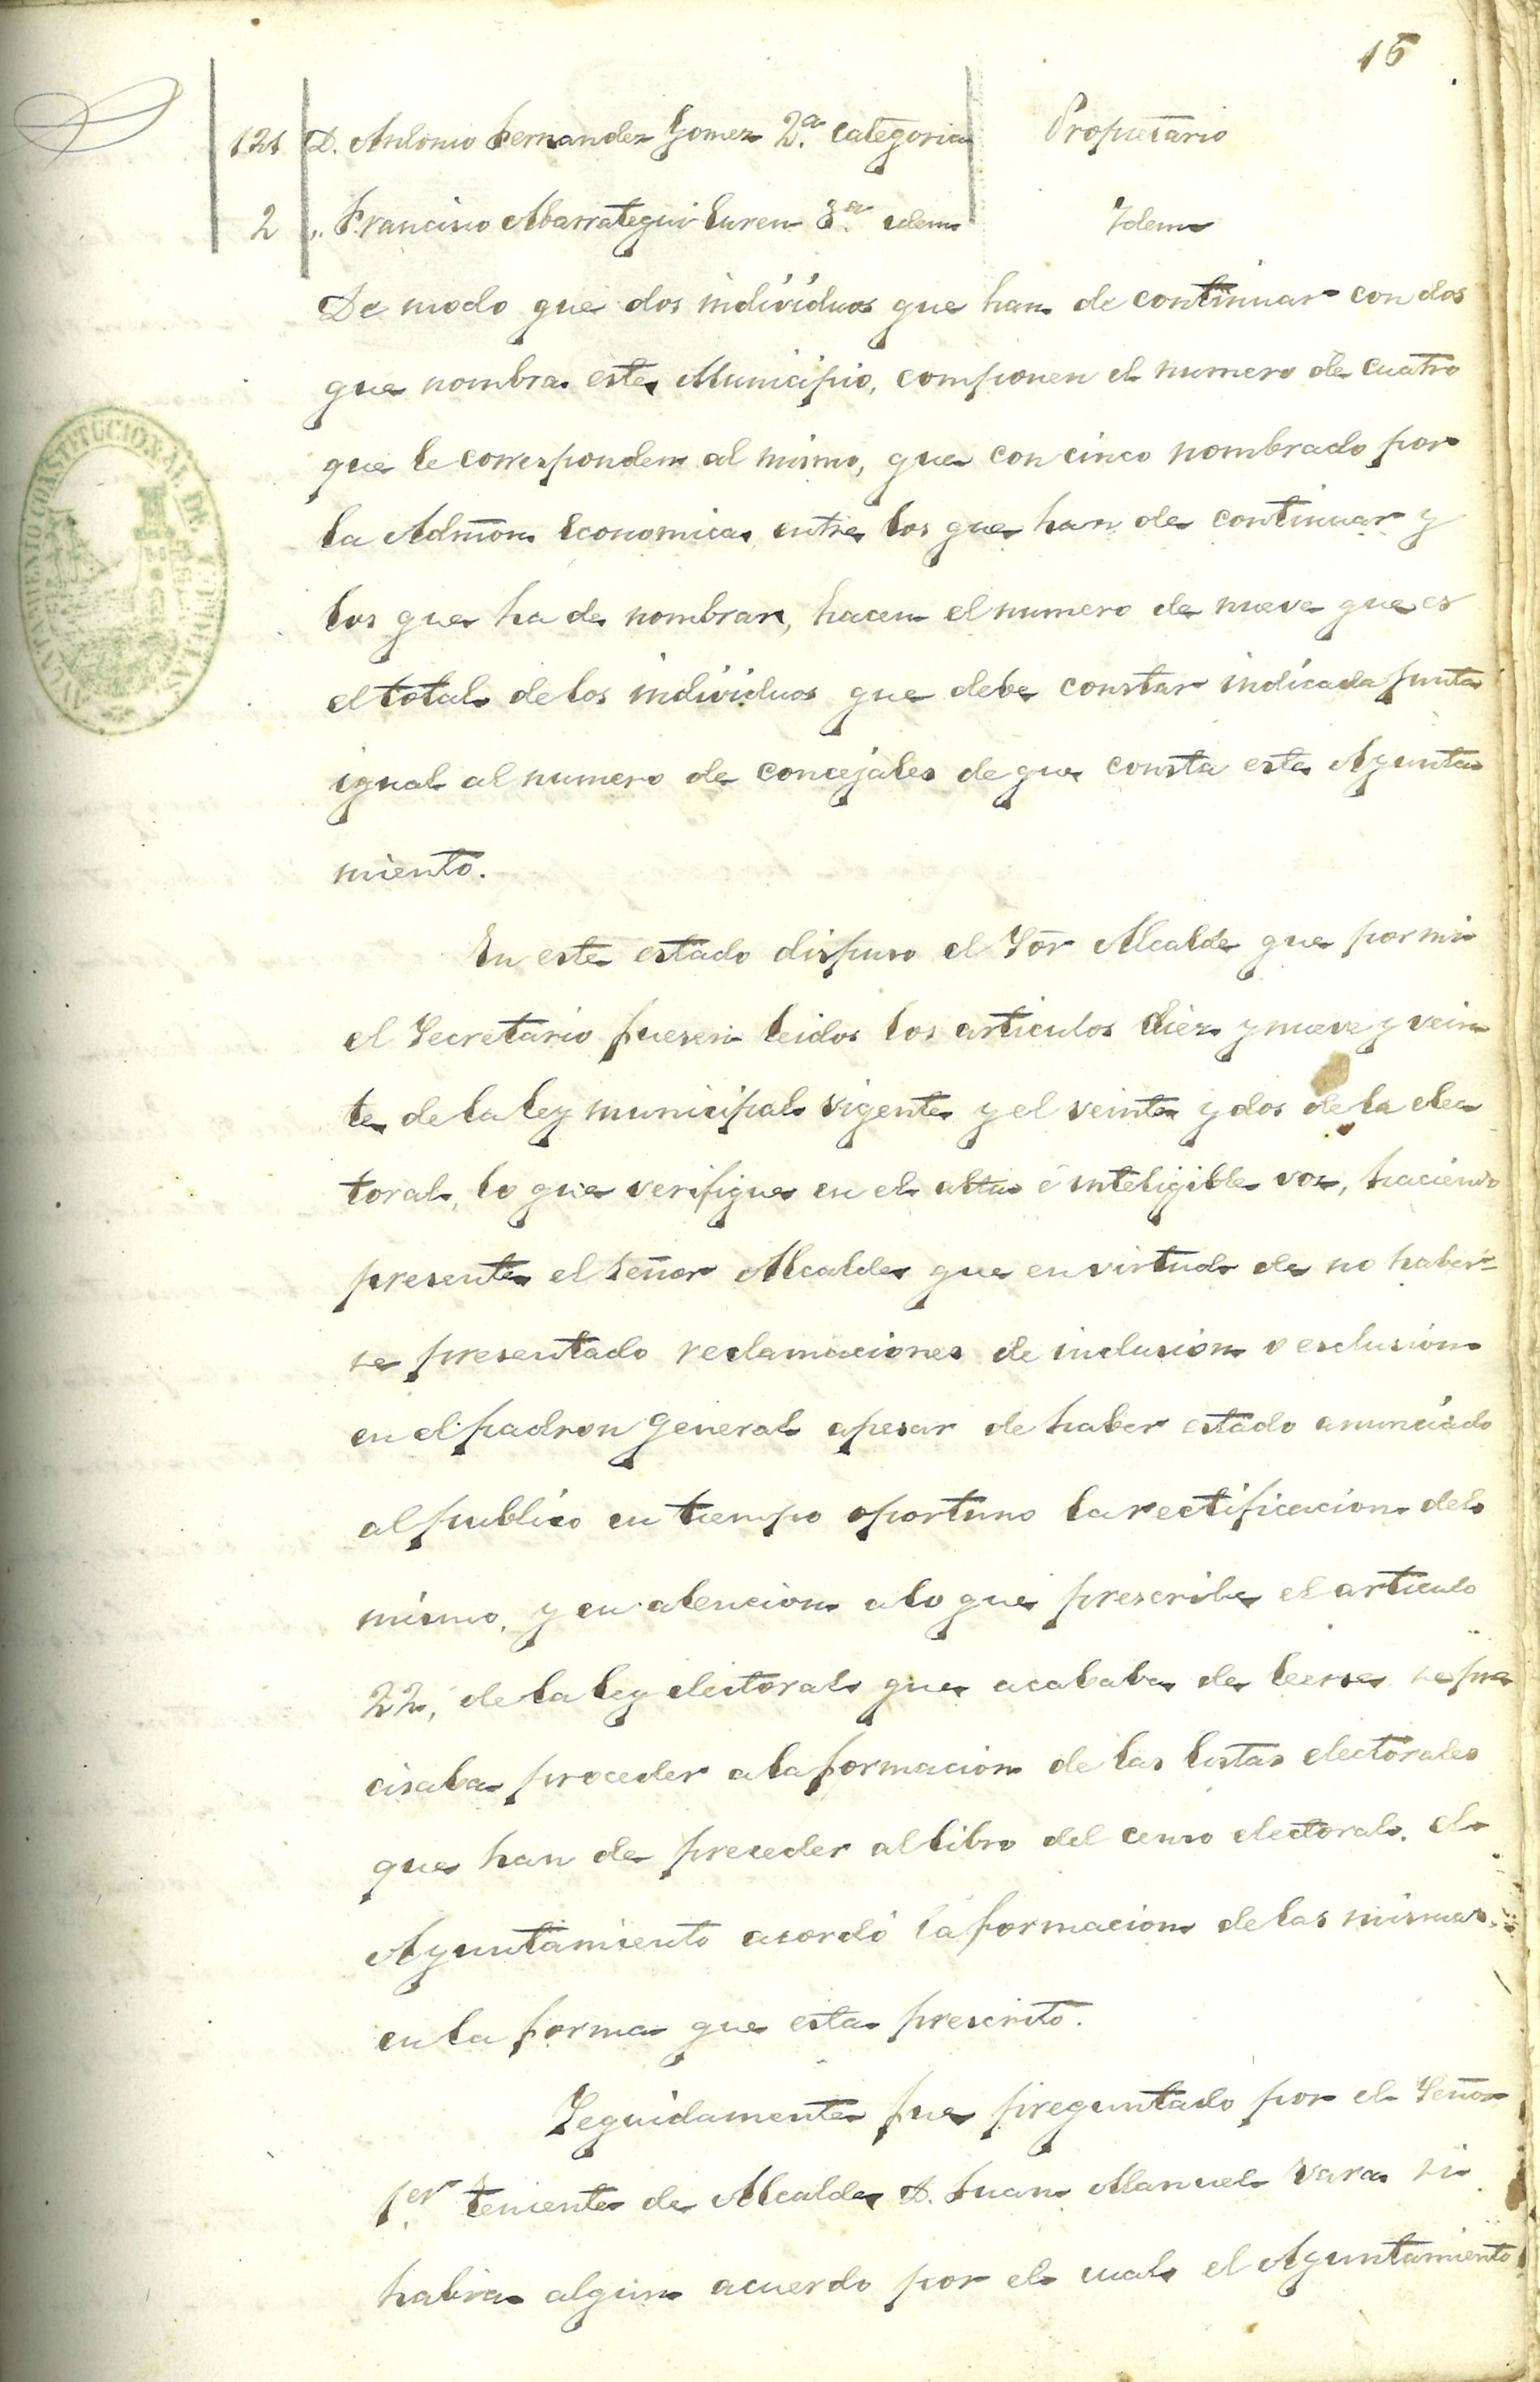 15
121 D. Antonio Fernandez Gomez 2.ª Categoria Propietario
2 ,, Francisco Abarrategui 3.ª idem Idem
De modo que dos individuos que han de continuar con dos
que nombra este Municipio, componen el numero de cuatro
que le corresponden al mismo, que con cinco nombrado por
la Admōn Economica, entre los que han de continuar y
los que ha de nombrar, hacen el numero de nueve que es
el total de los individuos que debe constar indicada junta
igual al numero de concejales de que consta este Ayunta
miento.
En este estado dispuso el Sōr Alcalde que por mi
el Secretario fuesen leidos los articulos diez y nueve y vein
te de la ley municipal vigente y el veinte y dos de la elec
toral, lo que verifique en el alta é inteligible voz, haciendo
presente el Señor Alcalde que en virtud de no haber-
se presentado reclamaciones de inclusion o esclusion
en el padron general apesar de haber estado anunciado
al publico en tiempo oportuno la rectificacion del
mismo, y en atencion a lo que prescribe el articulo
22, de la ley electoral que acababa de leerse se pre
cisaba proceder a la formacion de las listas electorales
que han de preceder al libro del censo electoral. el
Ayuntamiento acordó la formacion de las mismas
en la forma que esta prescrito.
Seguidamente fue preguntado por el Señor
p.er teniente de Alcalde D. Juan Manuel Vara si
habia algun acuerdo por el cual el Ayuntamiento
AYUNTAMIENTO CONSTITUCIONAL DE